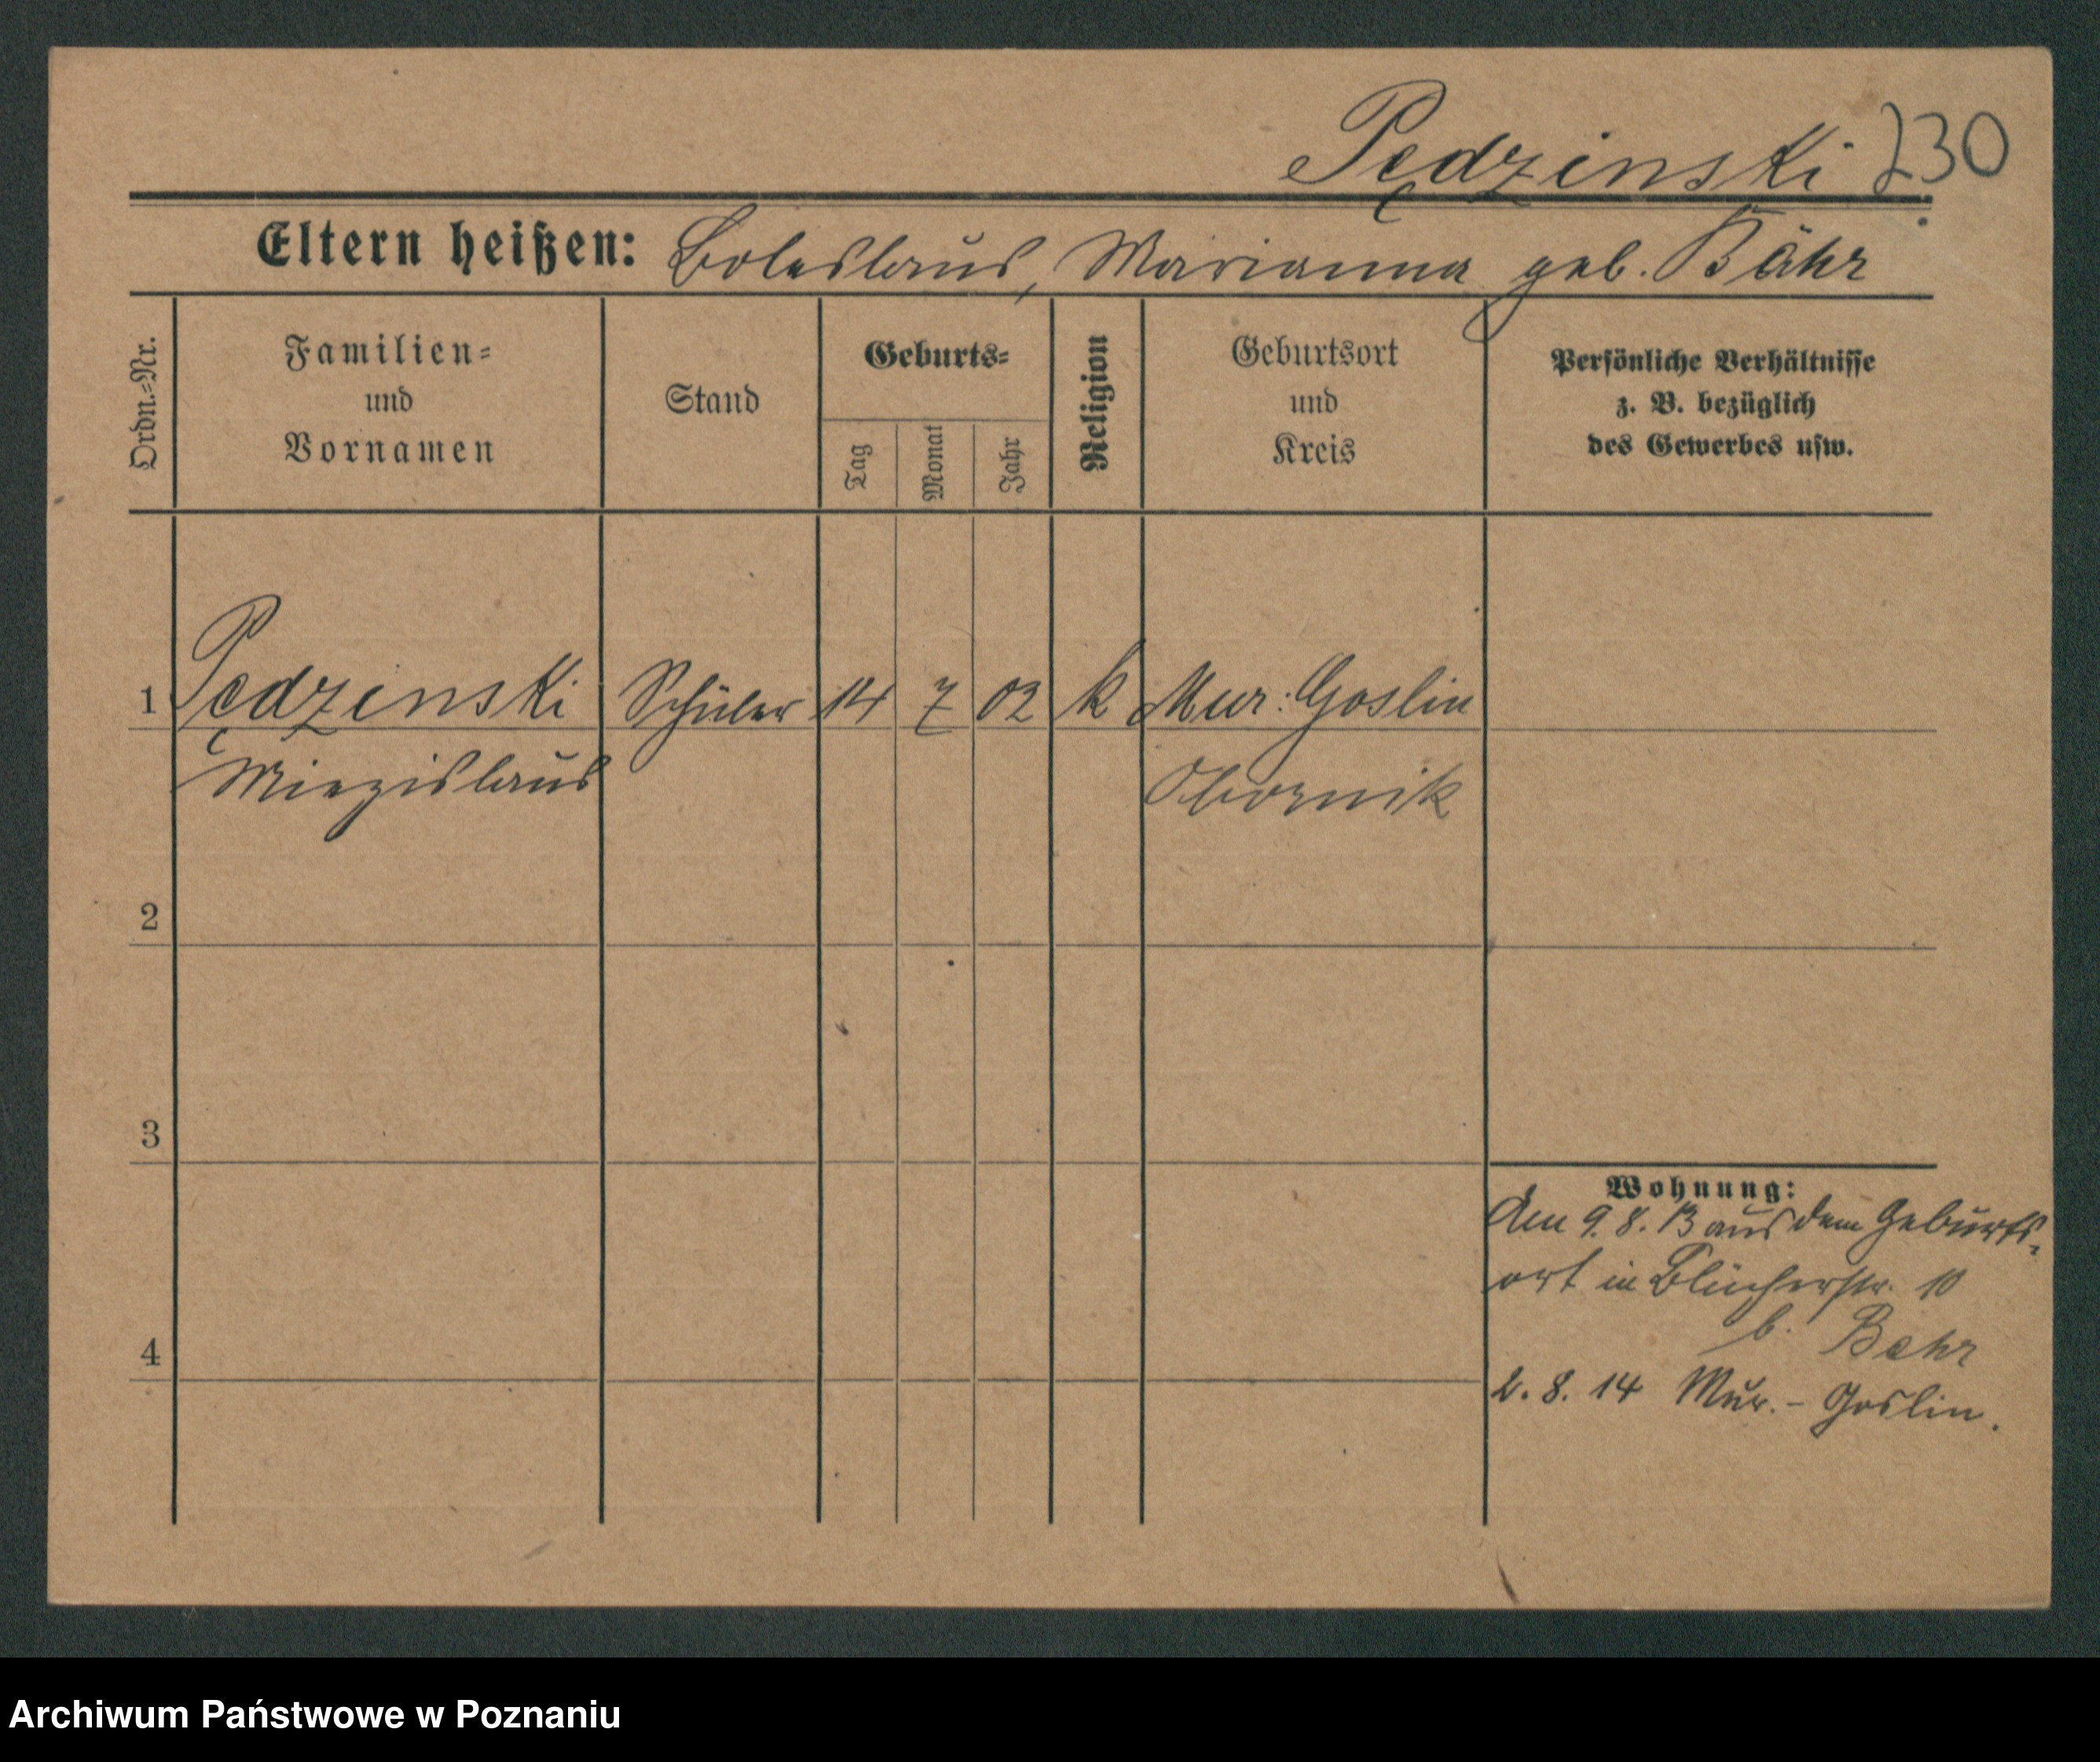 Pędzinski 230
Eltern heißen: Boleslaus, Marianna geb. Bähr
Ordn.=Nr.
Familien=
und
Vornamen
Stand
Geburts=
Tag
Monat
Jahr
Religion
Geburtsort
und
Kreis
Persönliche Verhältnisse
z. B. bezüglich
des Gewerbes usw.
1 Pędzinski Schüler 14 7 02 k Mur: Goslin
Miezislaus Obornik
2
3
Wohnung:
Am 9. 8. 13 aus dem Geburts-
ort in Blücherstr. 10
b. Behr
4
2. 8. 14 Mur.- Goslin.
Archiwum Państwowe w Poznaniu